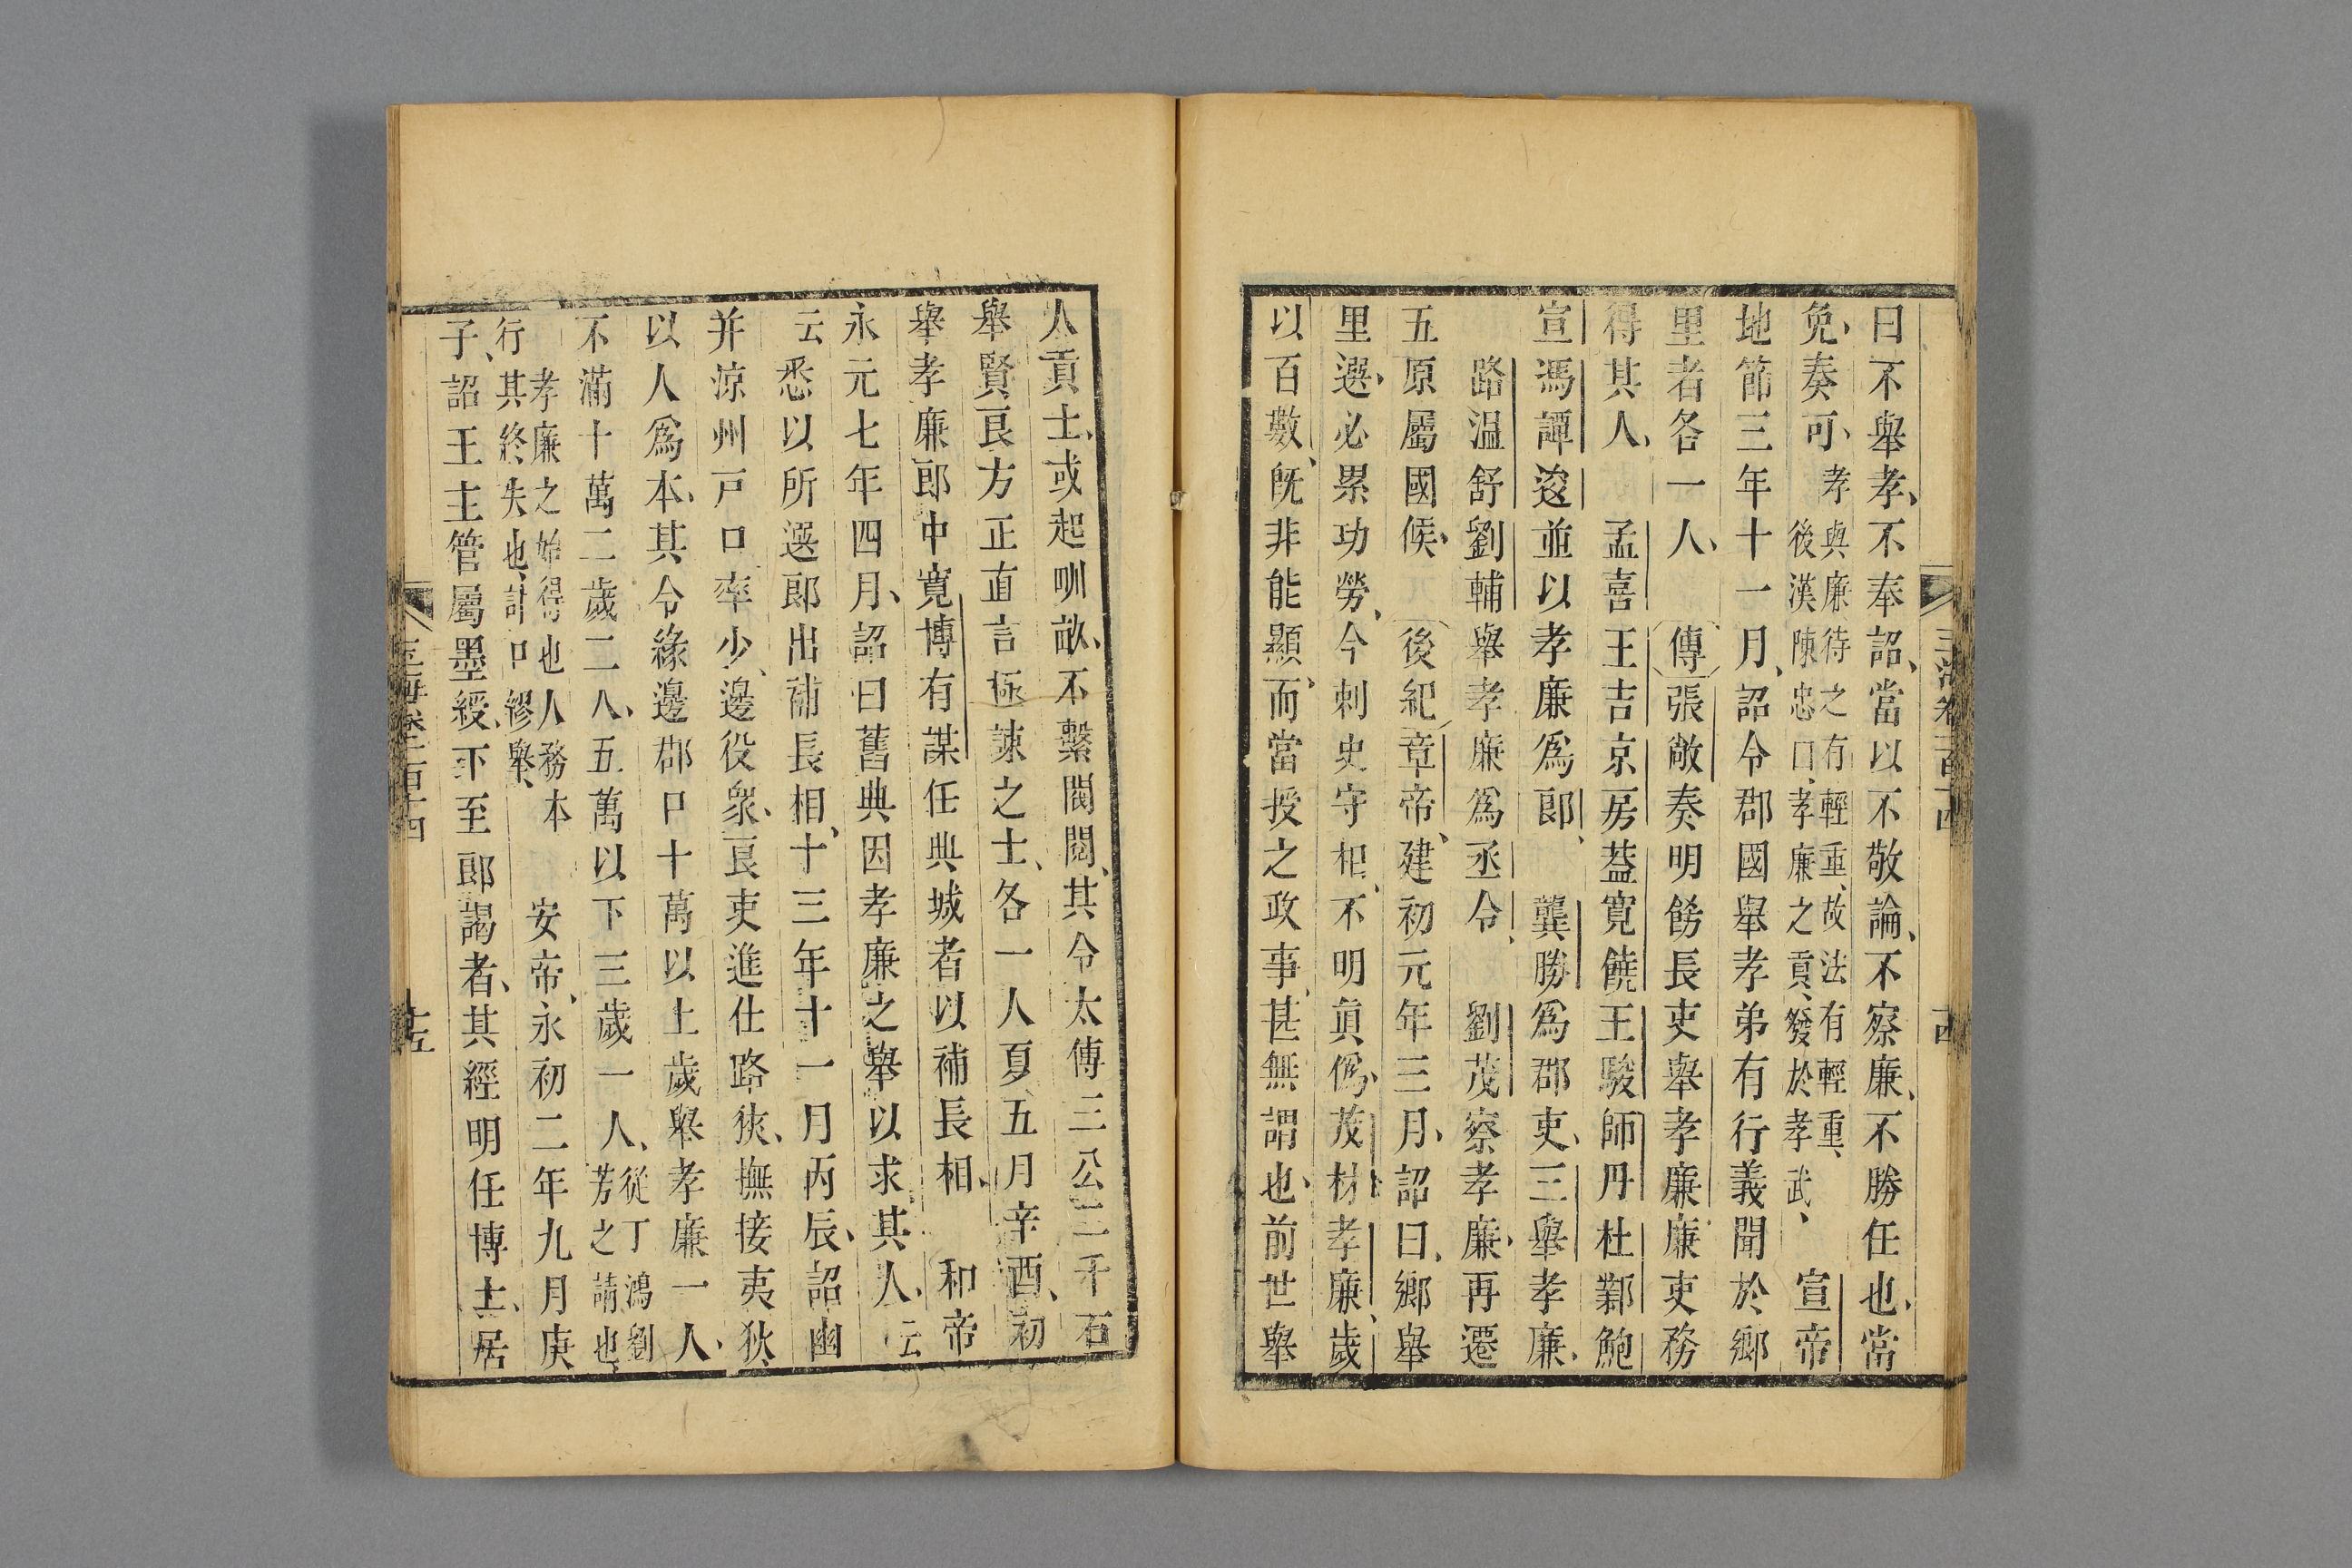 曰不舉孝、不奉詔、當以不敬論、不察廉、不勝任也、當
免、奏可、孝與廉待之有輕重、故法有輕重、後漢陳忠曰、孝廉之貢、發於孝武、宣帝
地節三年十一月、詔令郡國舉孝弟有行義聞於鄉
里者各一人、傳張敞奏明飭長吏舉孝廉廉吏務
得其人、孟喜王吉京房葢寬饒王駿師丹杜鄴鮑
宣馮譚逡並以孝廉爲郎、龔勝爲郡吏、三舉孝廉、
路温舒劉輔舉孝廉爲丞令、劉茂察孝廉、再遷
五原屬國候、後紀章帝、建初元年三月、詔曰、鄉舉
里選、必累功勞、今刺史守相、不明眞僞、茂材孝廉、歲
以百數、旣非能顯、而當授之政事、甚無謂也、前世舉
人貢士、或起甽畝、不繫閥閱、其令太傅三公二千石
舉賢良方正直言極諫之士、各一人夏、五月辛酉、初
舉孝廉郎中寬博有謀任典城者以補長相、和帝
永元七年四月、詔曰舊典因孝廉之舉以求其人、云
云悉以所選郎出補長相、十三年十一月丙辰、詔幽
并涼州戸口率少、邊役衆、良吏進仕路狹、撫接夷狄、
以人爲本、其令緣邊郡口十萬以上歲舉孝廉一人、
不滿十萬二歲二人、五萬以下三歲一人、從丁鴻劉芳之請也
孝廉之始得也人務本行其終失也、計口繆舉、安帝、永初二年九月庚
子、詔王主管屬墨綬、下至郎謁者、其經明任博士、居